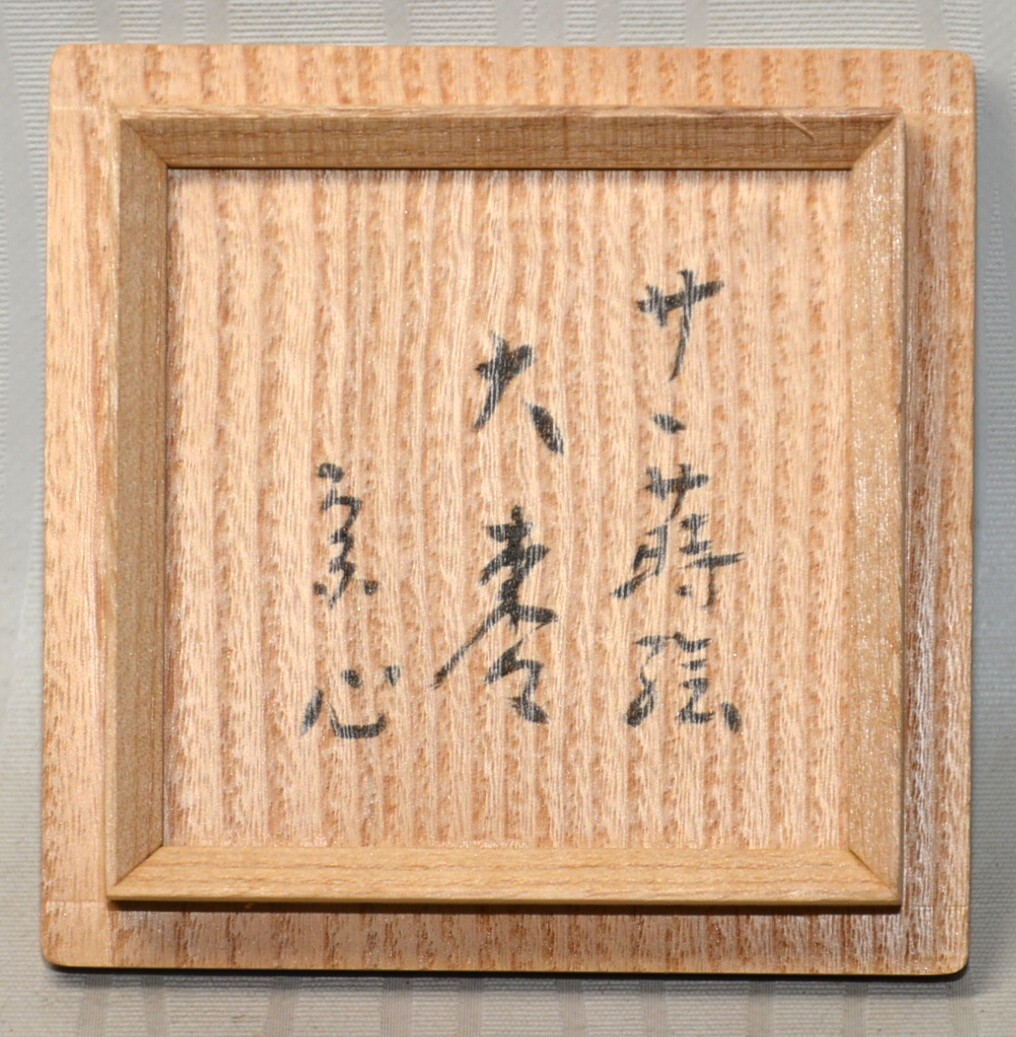 サヽ蒔絵
大棗
宗心